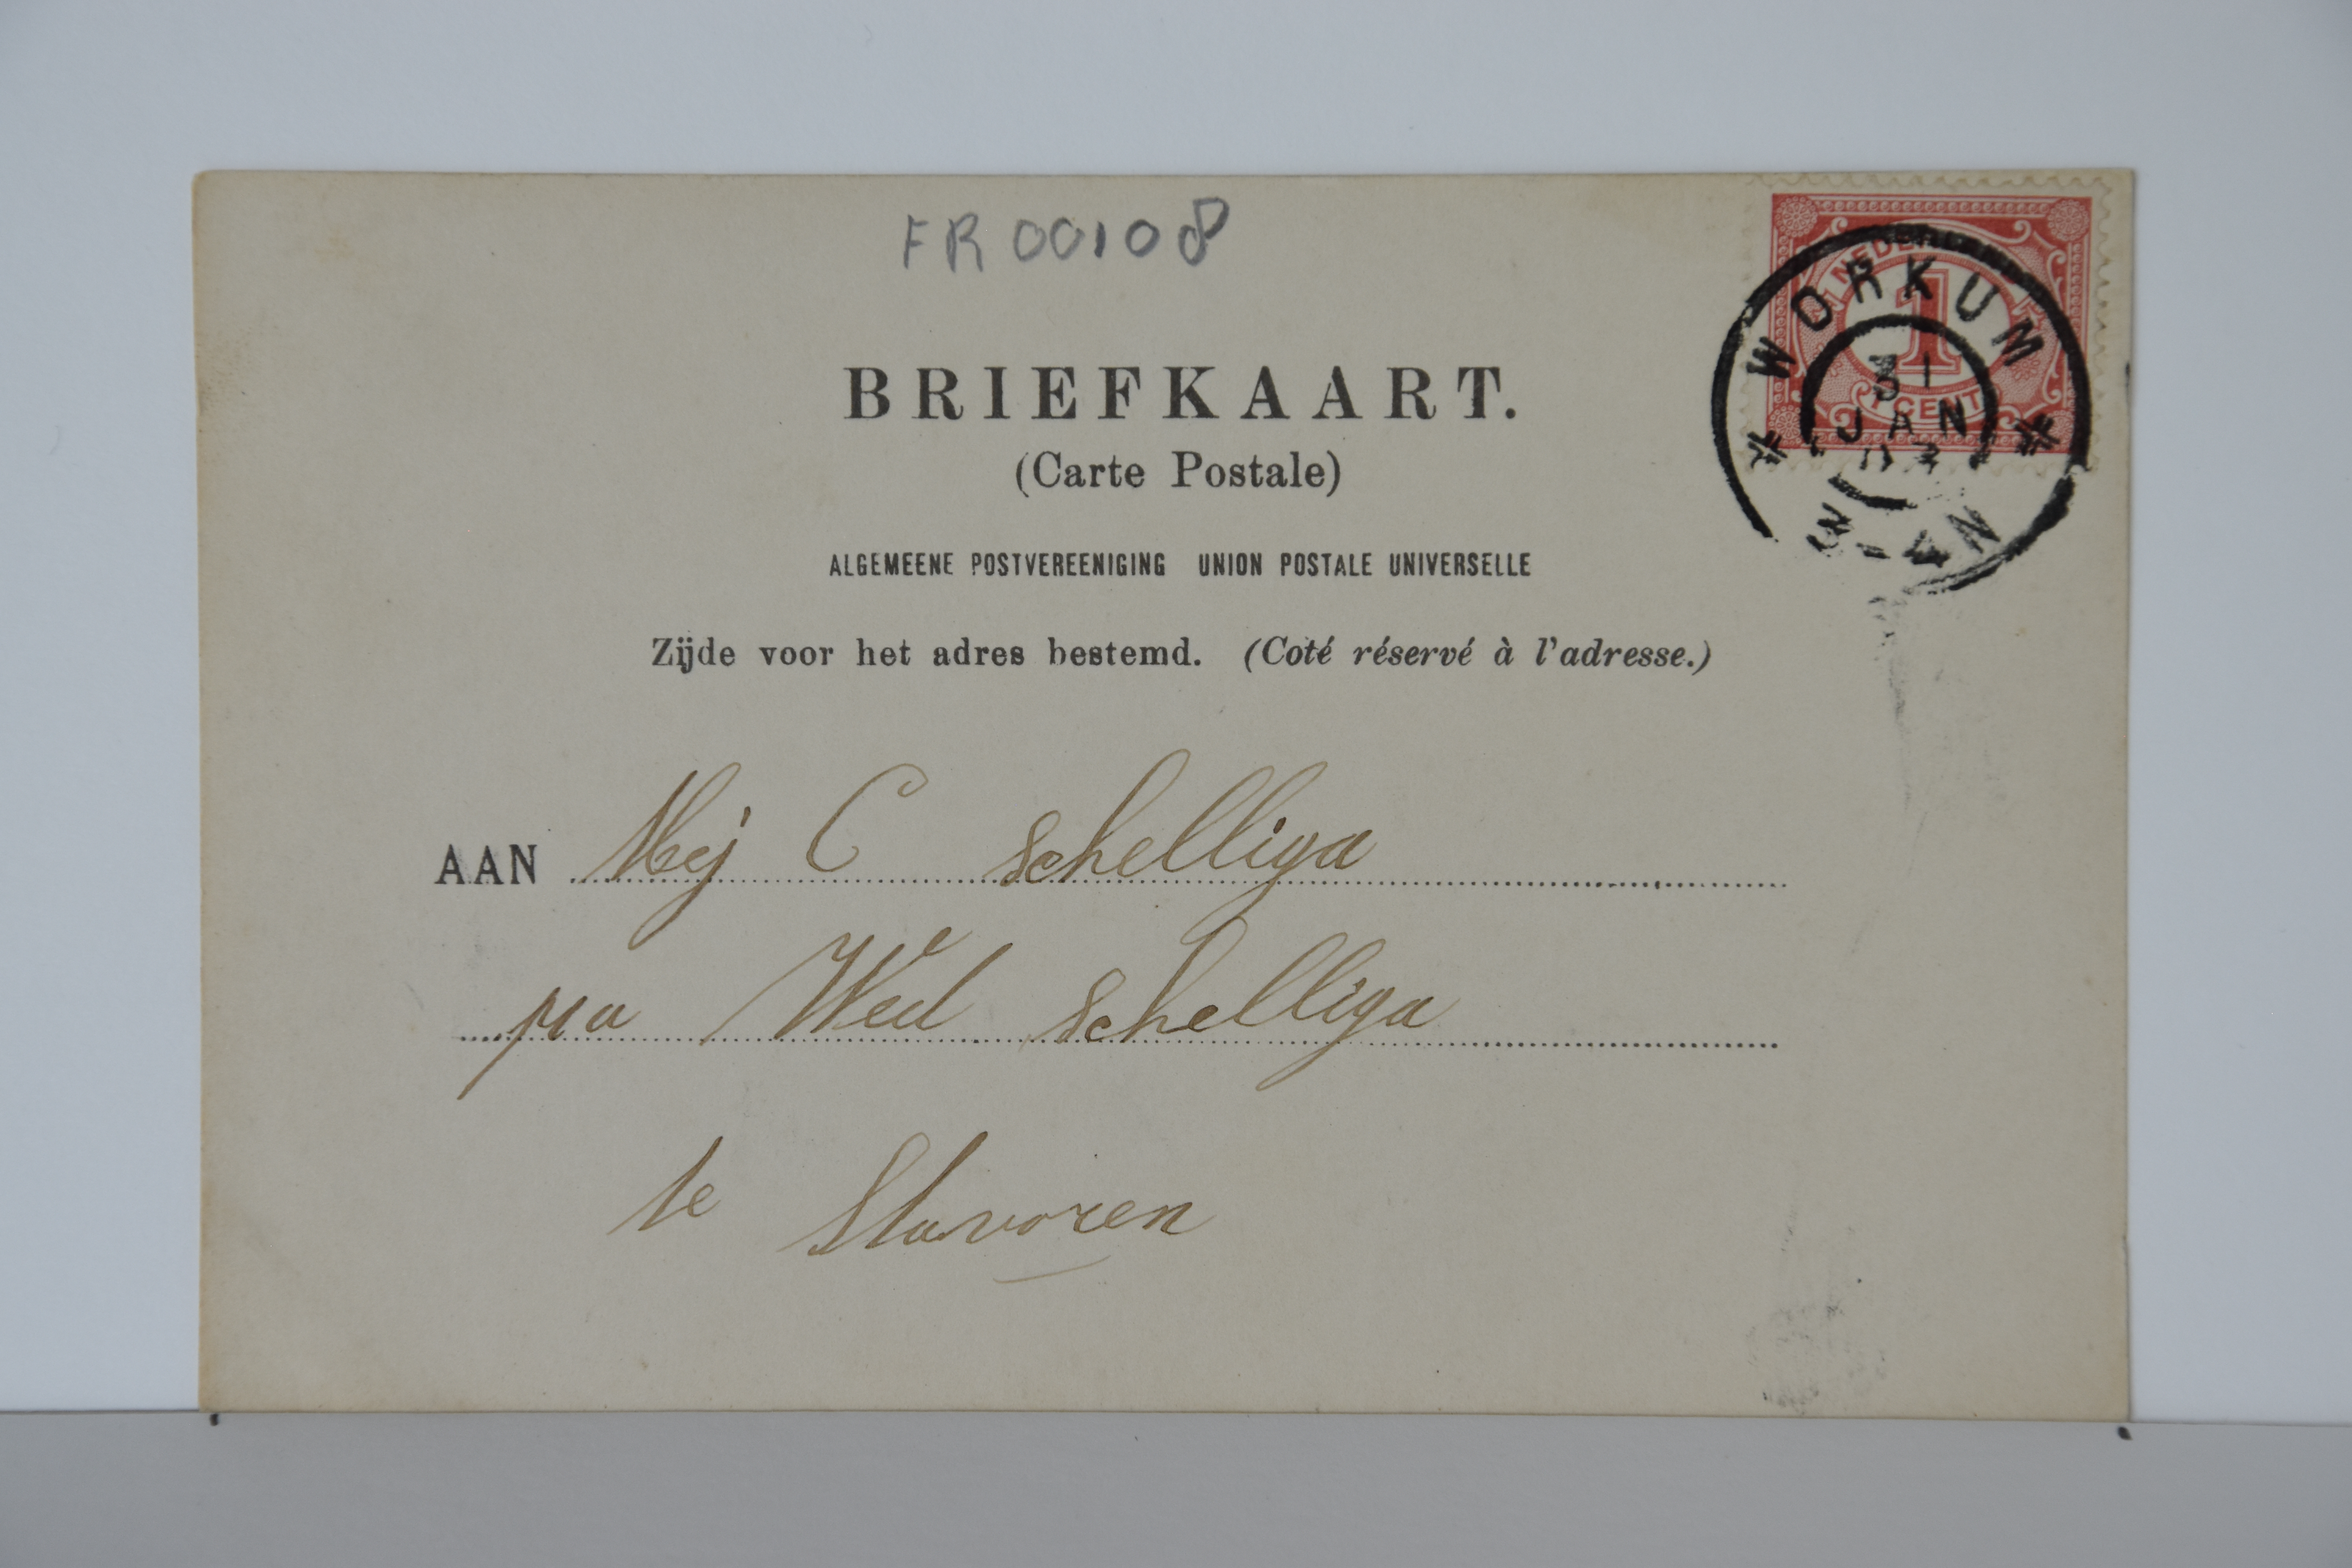 FR 00108
BRIEFKAART.
(Carte Postale)
ALGEMEENE POSTVEREENIGING UNION POSTALE UNIVERSELLE
Zijde voor het adres bestemd. (Coté réservé à l'adresse.)
NEDER
1
1 CENT
WORKUM
31
JAN
3-4N
AAN Mej C Schelliga
p/a Wed Schelliga
te Stavoren